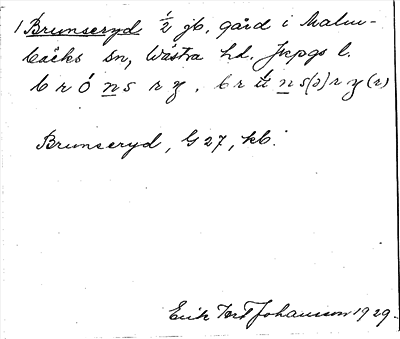 1 Brunseryd ½ jb, gård i Malm-
bäcks sn, Västra hd. Jkpgs l.
b r ó n s r y , b r ü n s (ə) r y (r)
Brunseryd, G 27, kb.
Erik Johansson 1929.